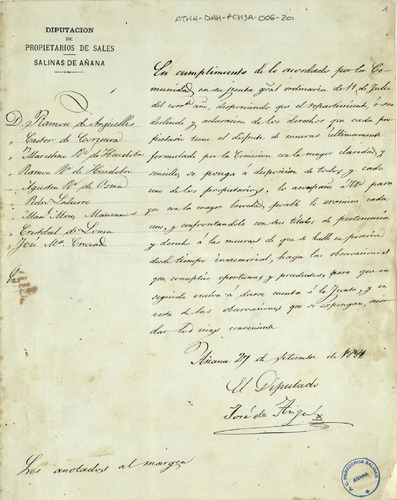 ATHA-DAH-FCHSA-006-201
1
DIPUTACION
DE
PROPIETARIOS DE SALES
SALINAS DE AÑANA
D. Ramon de Arguelles
Castor de
Marcelino
Ramon
Agustin
Pedro
Man.
Cristobal de
José Ma.
En cumplimiento de lo acordado por la Co-
munidad, en su junta gral ordinaria de 11 de Julio
del corrte. año, disponiendo que el repartimiento, ó sea
deslinde y aclaracion de los derechos que cada pro-
pietario tiene al disfrute de mueras últimamente
formulado por la Comision con la mayor claridad y
sencillez, se ponga á disposicion de todos y cada
uno de los propietarios, lo acompaño á VdS para
que con la mayor brevedad posible lo examine cada
uno, y confrontandolo con sus titulos de pertenencia
y derecho á las mueras de que se halla en posesion
desde tiempo inmemorial, haga las observaciones
que conceptúe oportunas y procedentes, para que en
seguida vuelva á darse cuenta á la Junta, y en
vista de las observaciones que se expongan, acor-
dar lo mas conveniente
Añana 27 de Setiembre de
El Diputado
José de
Sres anotados al margen
AÑANA